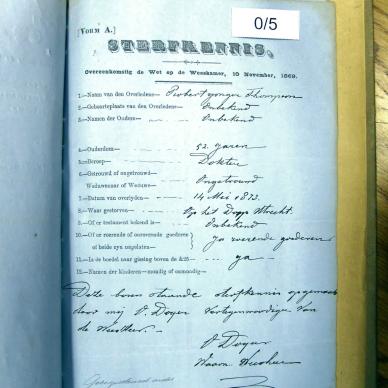 0/5
[VORM A.]
STERFKENNIS,
Overeenkomstig de Wet op de Weeskamer, 10 November, 1869.
1.—Naam van den Overledene— Robert Thompson
2.—Geboorteplaats van den Overledene— Onbekend
3.—Namen der Ouders— Onbekend
4.—Ouderdom— 52 jaren
5.—Beroep— Dokter
6.—Getrouwd of ongetrouwd— Ongetrouwd
Weduwenaar of Weduwe—
7.—Datum van overlyden— 14 Mei 1873.
8.—Waar gestorven— Op het Dorp Utrecht.
9.—Of er testament bekend is— Onbekend
10.—Of er roerende of onroerende goederen of beide zyn ongelaten— Ja roerende goederen
11.—Is de boedel naar gissing boven de £25— ja
12.—Namen der kinderen—mondig of onmondig—
Deze boven staande sterfkennis opgemaak
door mij Vertegenwoordige van
de Weesheer—
Waarn. Weesheer